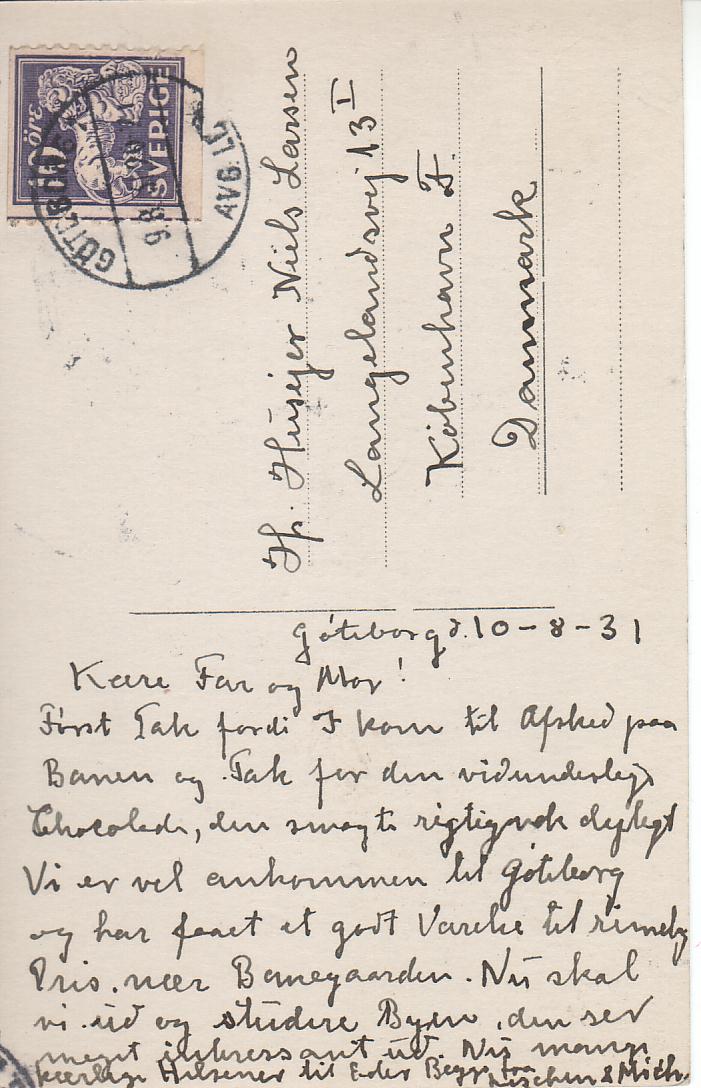 10 öre
SVERIGE
GÖTEBORG
AVG. 11
8 31
Hr. Husejer Niels Larsen
Langelandsvej 13 I
København F.
Danmark
Göteborg d. 10-8-31
Kære Far og Mor!
Först Tak fordi I kom til Afsked paa
Banen og Tak for den vidunderlige
Chocolade, den smagte rigtignok dejligt
Vi er vel ankommen til Göteborg
og har faaet et godt Værelse til rimelig
Pris. nær Banegaarden. Nu skal
vi ud og studere Byen, den ser
meget interessant ud. Nu mange
kærlige Hilsener til Eder Begge fra